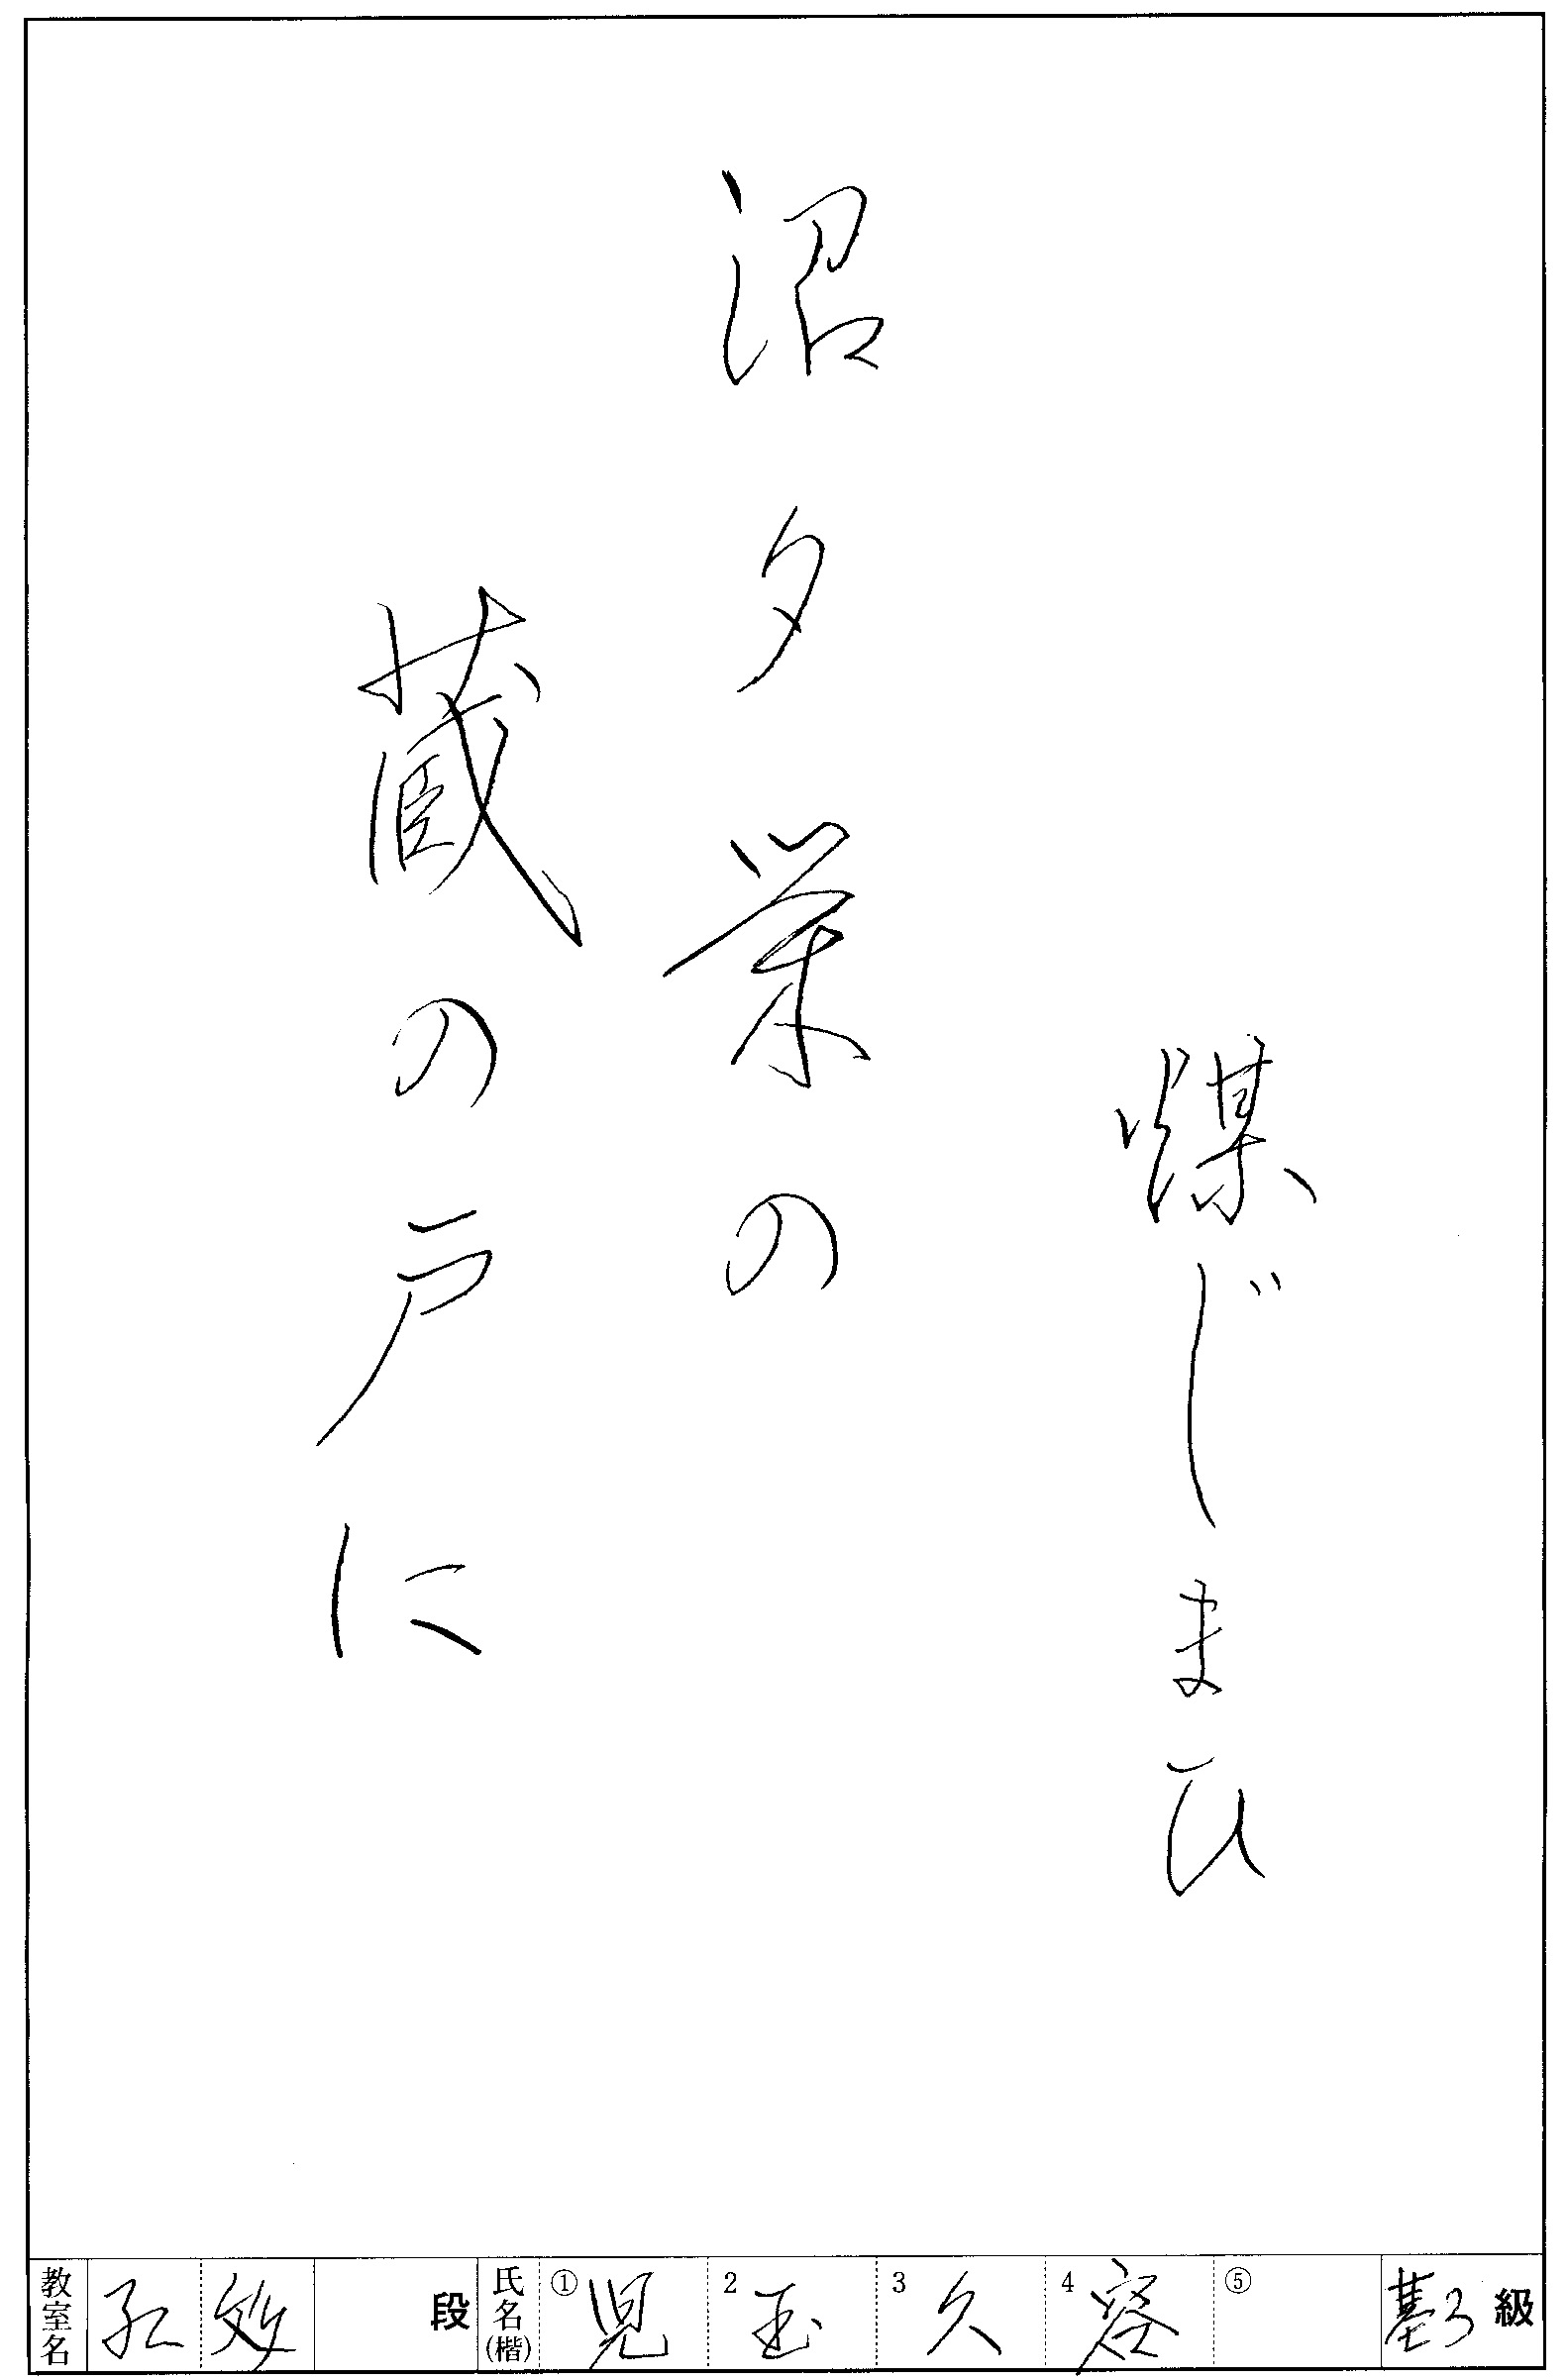 煤じまひ
沼夕栄の
蔵の戸に
教室名 段 氏名(楷) ① 児 2 玉 3 久 4 容 ⑤ 基3 級